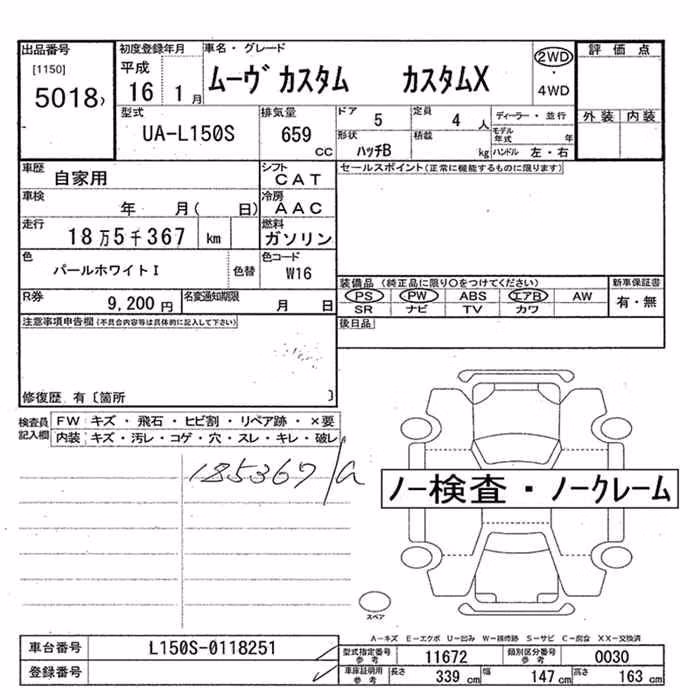 出品番号 初度登録年月 車名・グレード 2WD 評価点
[1150] 平成 ムーヴカスタム カスタムX ・
5018 16 1月 4WD
型式 排気量 ドア 5 定員 4人 ディーラー・並行 外装 内装
UA-L150S 659 cc 形状 ハッチB 積載 kg モデル年式 年
ハンドル 左・右
車歴 自家用 シフト CAT セールスポイント(正常に機能するものに限ります)
車検 年 月( 日) 冷房 AAC
走行 18万5千367 km 燃料 ガソリン
色 パールホワイトI 色替 色コード W16
装備品(純正品に限り○をつけてください) 新車保証書
R券 9,200円 名変通知期限 月 日 PS PW ABS エアB AW 有・無
SR ナビ TV カワ
注意事項申告欄(不具合内容等は具体的に記入して下さい) 後日品
修復歴 有〔箇所 〕
検査員 FW キズ・飛石・ヒビ割・リペア跡・×要
記入欄 内装 キズ・汚レ・コゲ・穴・スレ・キレ・破レ
185367
ノー検査・ノークレーム
スペア
A-キズ E-エクボ U-凹み W-補修跡 S-サビ C-腐食 XX-交換済
車台番号 L150S-0118251 型式指定番号 参考 11672 類別区分番号 参考 0030
登録番号 車庫証明用 参考 長さ 339 cm 幅 147 cm 高さ 163 cm